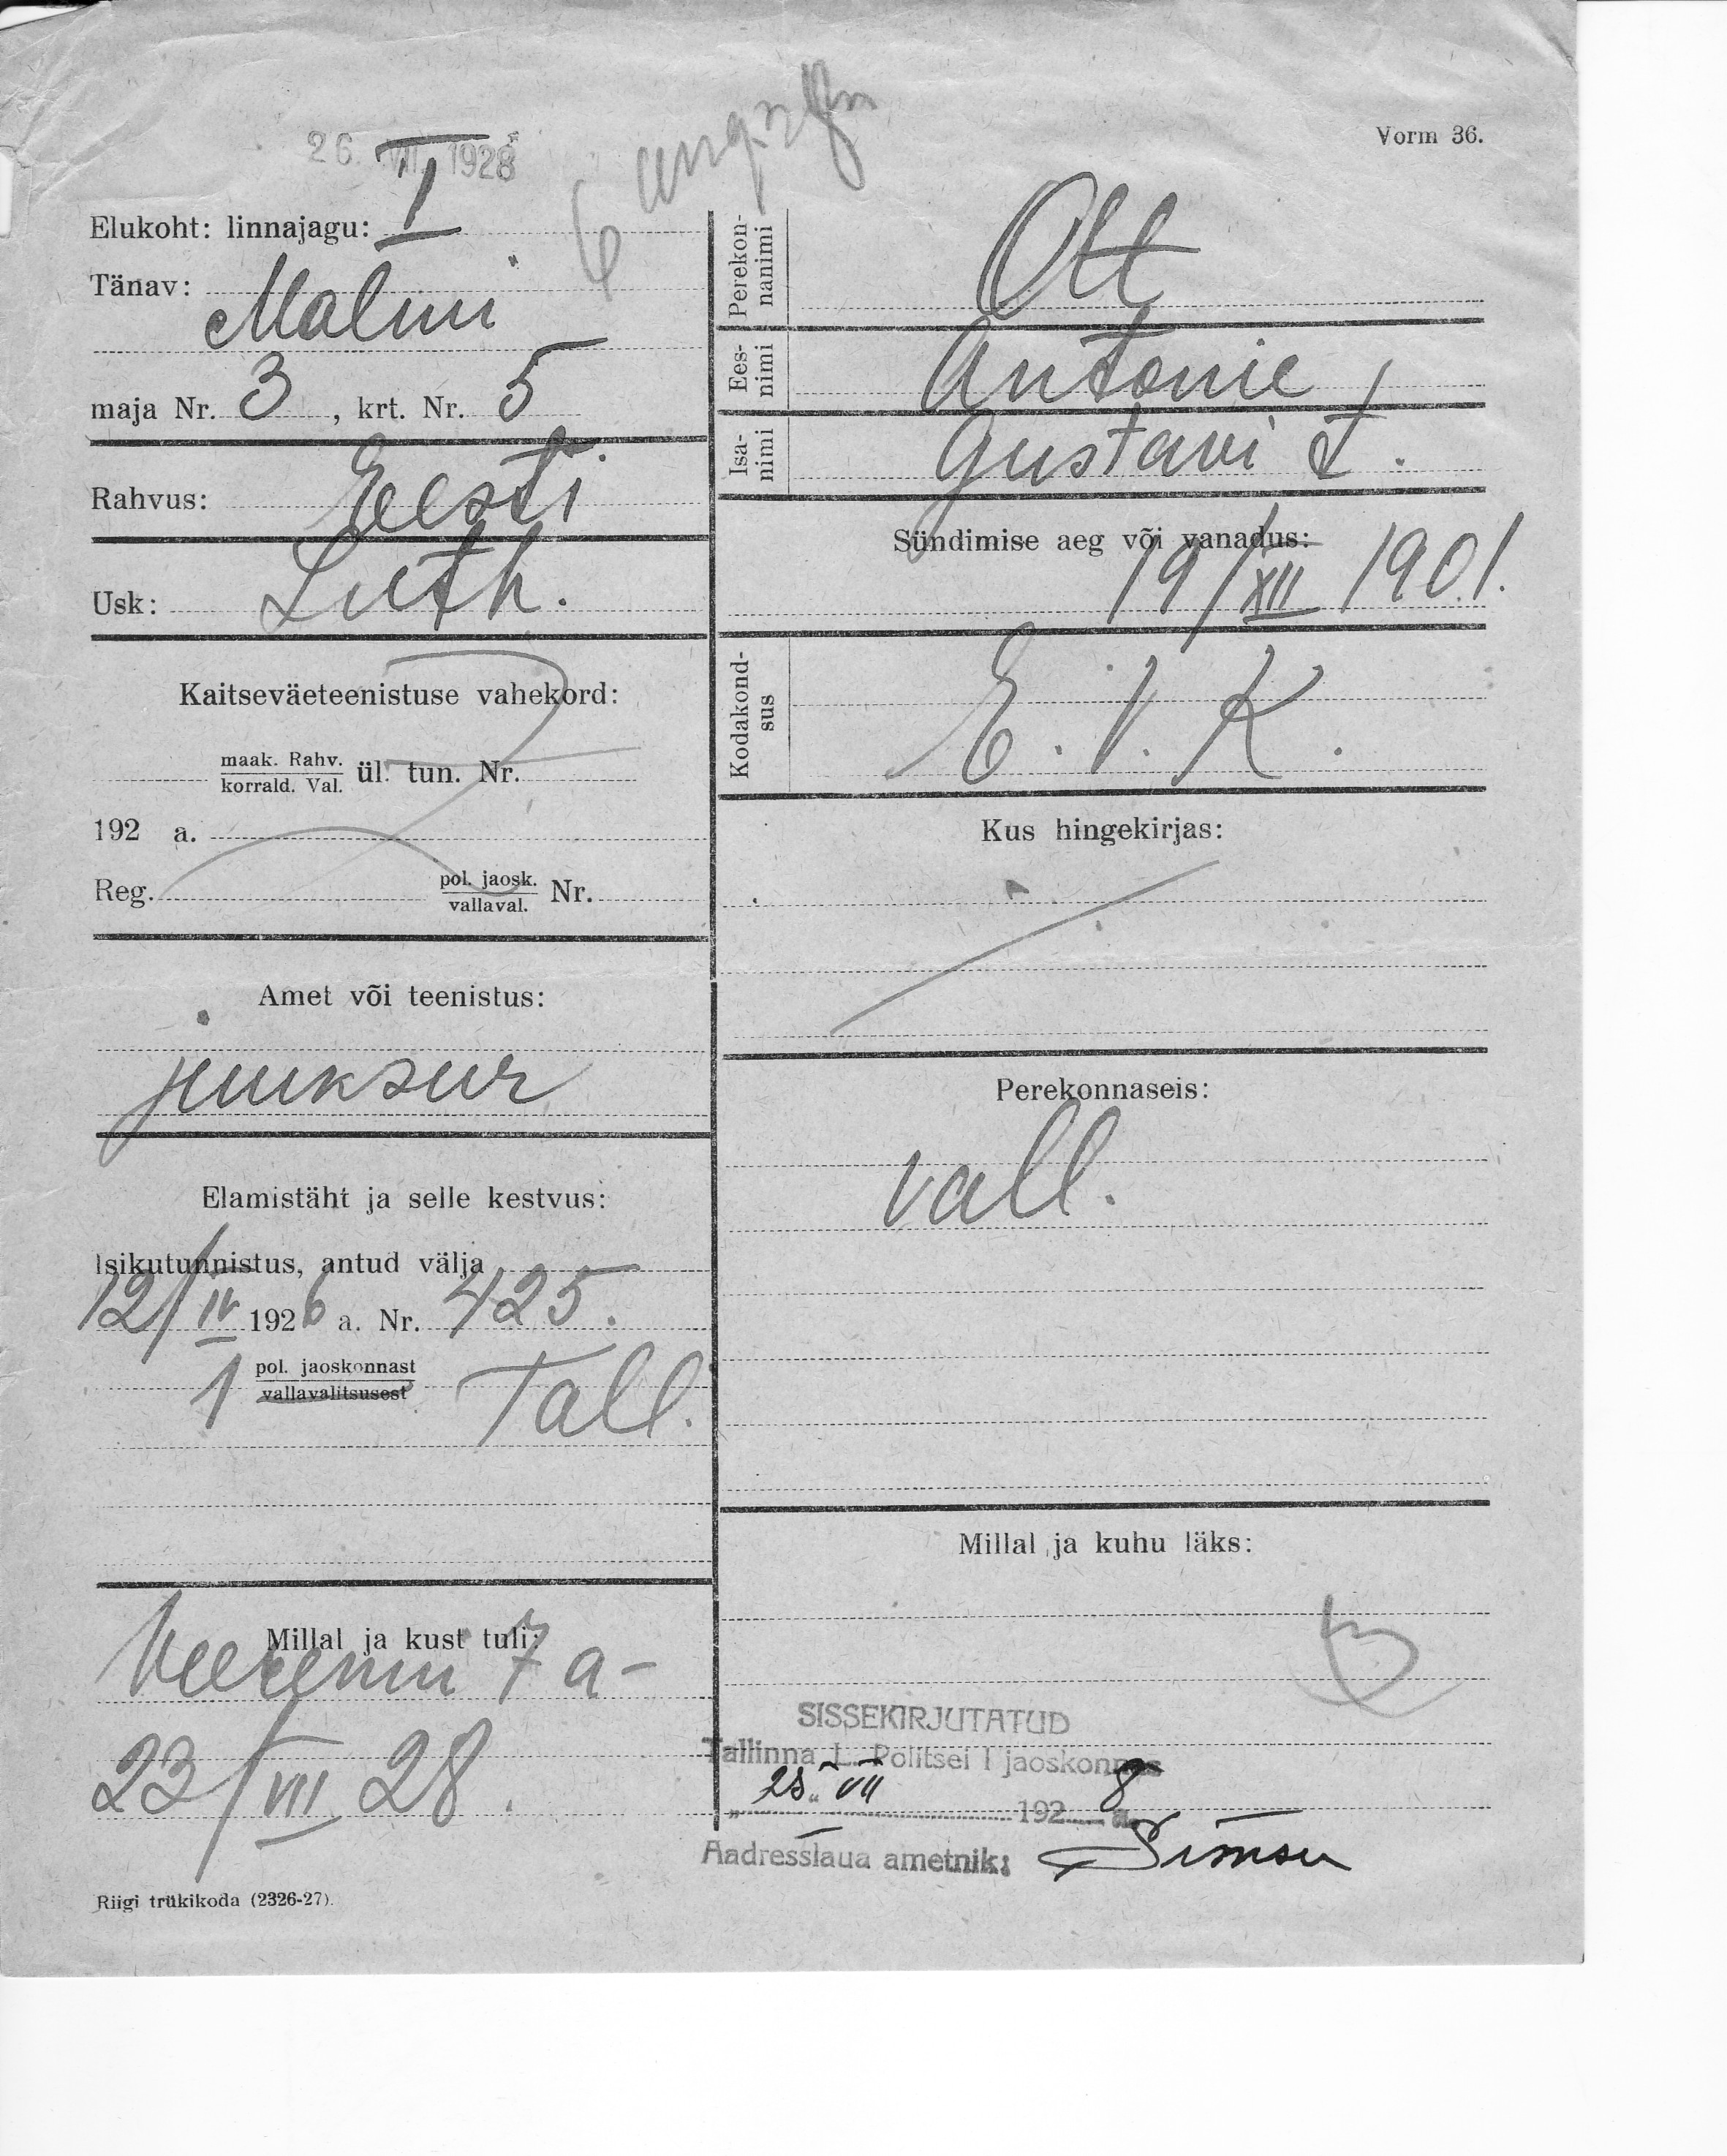 26. VII. 1928
Vorm 36.
Elukoht: linnajagu: I
Tänav:
Malmi
maja Nr. 3, krt. Nr. 5
Rahvus: Eesti
Usk: Luth.
Kaitseväeteenistuse vahekord:
maak. Rahv.
korrald. Val. ül. tun. Nr.
192 a.
Reg. pol. jaosk.
vallaval. Nr.
Amet või teenistus:
juuksur
Elamistäht ja selle kestvus:
Isikutunnistus, antud välja
12/IV 1926 a. Nr. 425.
1 pol. jaoskonnast
vallavalitsusest Tall.
Millal ja kust tuli:
Veerenni 7a-
23/VII 28.
Riigi trükikoda (2326-27).
Perekonnanimi
Ott
Eesnimi
Antonie
Isanimi
Gustavi t.
Sündimise aeg või vanadus:
19/XII 1901.
Kodakondsus
E. V. K.
Kus hingekirjas:
Perekonnaseis:
vall.
Millal ja kuhu läks:
SISSEKIRJUTATUD
Tallinna L. Politsei I jaoskonnas
„25.“ VII 1928 a.
Aadresslaua ametnik: